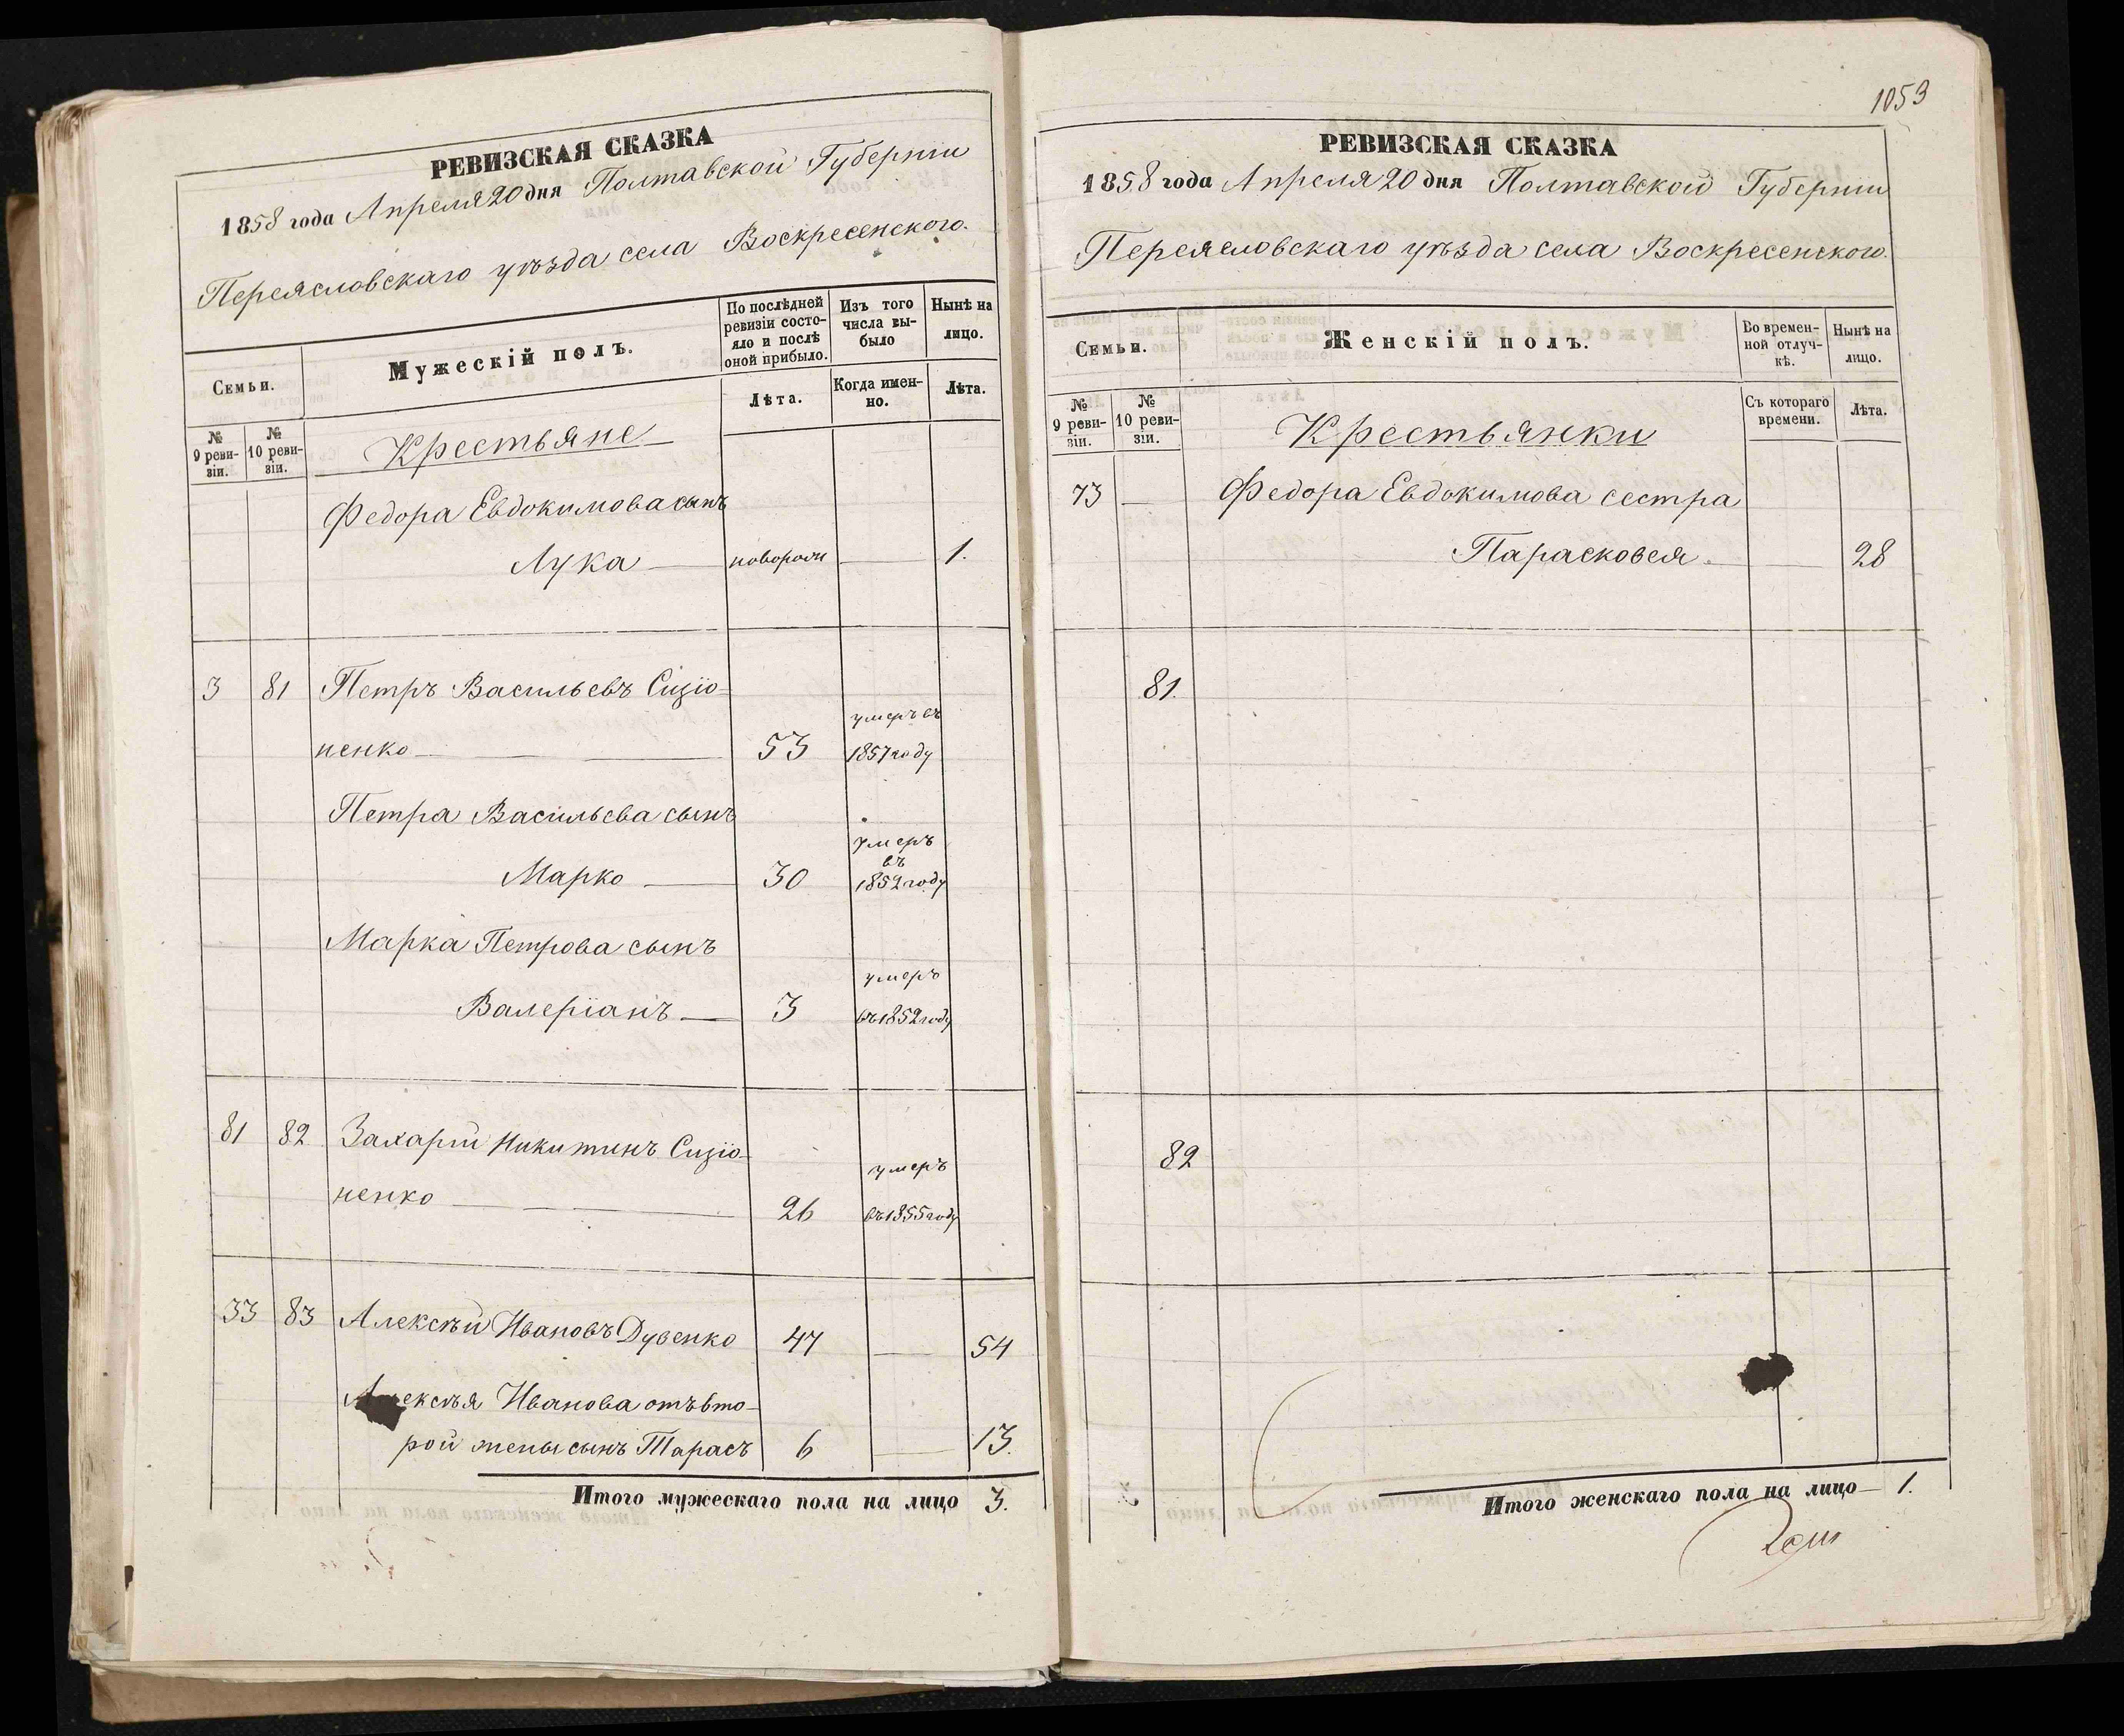 РЕВИЗСКАЯ СКАЗКА
1858 года Апреля 20 дня Полтавской Губернiи
Переясловскаго уѣзда села Воскресенского.
Семьи.
Мужескiй полъ.
По послѣдней ревизiи состояло и послѣ оной прибыло.
Изъ того числа выбыло
Нынѣ на лицо.
№ 9 ревизiи.
№ 10 ревизiи.
Лѣта.
Когда именно.
Лѣта.
Крестьяне
Федора Евдокимова сынъ
Лука новорож 1.
3 81 Петръ Васильевъ Сизiо-
умеръ въ
ненко 53 1857 году
Петра Васильева сынъ
умеръ
въ
Марко 30 1852 году
Марка Петрова сынъ
умеръ
Валерiанъ 3 въ 1852 году
81 82 Захарiй Никитинъ Сизiо-
умеръ
ненко 26 въ 1855 году
33 83 Алексѣй Ивановъ Дубенко 47 54
Алексѣя Иванова отъ вто-
рой жены сынъ Тарасъ 6 13.
Итого мужескаго пола на лицо 3.
1053
РЕВИЗСКАЯ СКАЗКА
1858 года Апреля 20 дня Полтавской Губернiи
Переясловскаго уѣзда села Воскресенского.
Семьи.
Женскiй полъ.
Во временной отлучкѣ.
Нынѣ на лицо.
№ 9 ревизiи.
№ 10 ревизiи.
Съ котораго времени.
Лѣта.
Крестьянки
73 Федора Евдокимова сестра
Парасковея 28
81.
82
Итого женскаго пола на лицо 1.